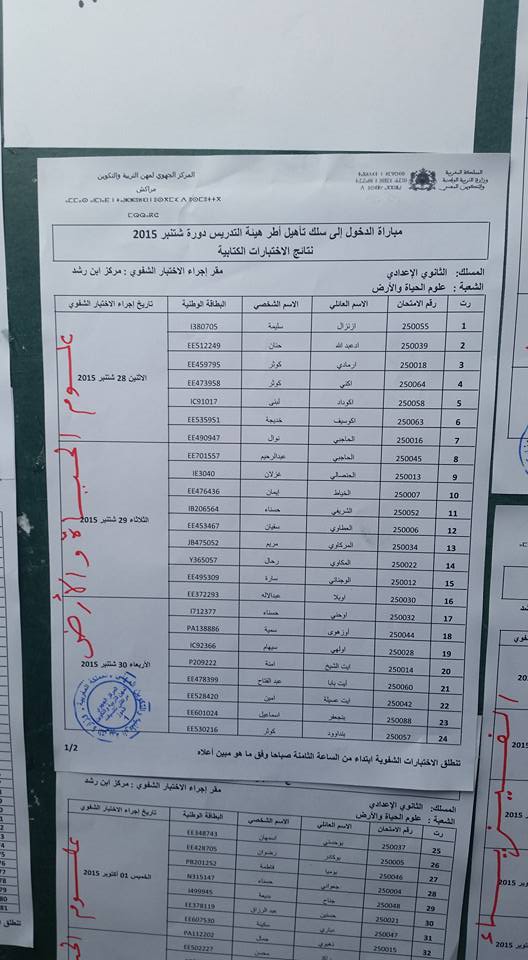 المملكة المغربية
وزارة التربية الوطنية
والتكوين المهني
المركز الجهوي لمهن التربية والتكوين
مراكش
مباراة الدخول إلى سلك تأهيل أطر هيئة التدريس دورة شتنبر 2015
نتائج الاختبارات الكتابية
المسلك: الثانوي الإعدادي
مقر إجراء الاختبار الشفوي : مركز ابن رشد
الشعبة : علوم الحياة والأرض
رت رقم الامتحان الاسم العائلي الاسم الشخصي البطاقة الوطنية تاريخ إجراء الاختبار الشفوي
1 250055 ازنزال سليمة I380705
2 250039 ادعبد الله حنان EE512249
3 250018 ارمادي كوثر EE459795
4 250064 اكني كوثر EE473958
الاثنين 28 شتنبر 2015
5 250058 اكوداد لبنى IC91017
6 250063 اكوسيف خديجة EE535951
7 250016 الحاجبي نوال EE490947
8 250045 الحاجبي عبدالرحيم EE701557
9 250013 الحنصالي غزلان IE3040
10 250007 الخياط إيمان EE476436
11 250052 الشريفي حسناء IB206564
الثلاثاء 29 شتنبر 2015
12 250006 العطاوي سفيان EE453467
13 250034 المركاوي مريم JB475052
14 250022 المكاوي رحال Y365057
15 250012 الوجناني سارة EE495309
16 250030 اوبلا عبدالاله EE372293
17 250032 اوحني حسناء I712377
18 250044 اوزهوى سمية PA138886
19 250028 اولهي سيهام IC92366
الأربعاء 30 شتنبر 2015
20 250014 ايت الشيخ امنة P209222
21 250060 ايت بابا عبد الفتاح EE478399
22 250042 ايت عسيلة امين EE528420
23 250088 بنجعفر اسماعيل EE601024
24 250057 بنداوود كوثر EE530216
تنطلق الاختبارات الشفوية ابتداء من الساعة الثامنة صباحا وفق ما هو مبين أعلاه
1/2
علوم الحياة و الأرض
المسلك: الثانوي الإعدادي
مقر إجراء الاختبار الشفوي : مركز ابن رشد
الشعبة : علوم الحياة والأرض
رت رقم الامتحان الاسم العائلي الاسم الشخصي البطاقة الوطنية تاريخ إجراء الاختبار الشفوي
25 250037 بوحسني اسمهان EE348743
26 250005 بوكادير رضوان EE428705
27 250046 بوميا فاطمة PB201252
28 250004 جعواني حسناء N315147
الخميس 01 أكتوبر 2015
29 250048 جناح خديجة I499945
30 250021 حسنين عبد الرزاق EE378119
31 250047 مباري سكينة EE607530
32 250015 زهيري جمال PA112202
محسن EE502227
علوم
الفيزياء